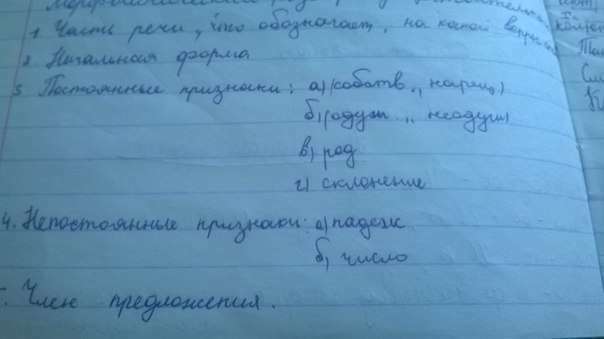 Морфологический
1 Часть речи, что обозначает, на какой вопрос
2 Начальная форма
3 Постоянные признаки: а) (собств., нариц.)
б) (одуш., неодуш)
в) род
г) склонение
4. Непостоянные признаки: а) падеж
б) число
Член предложения.